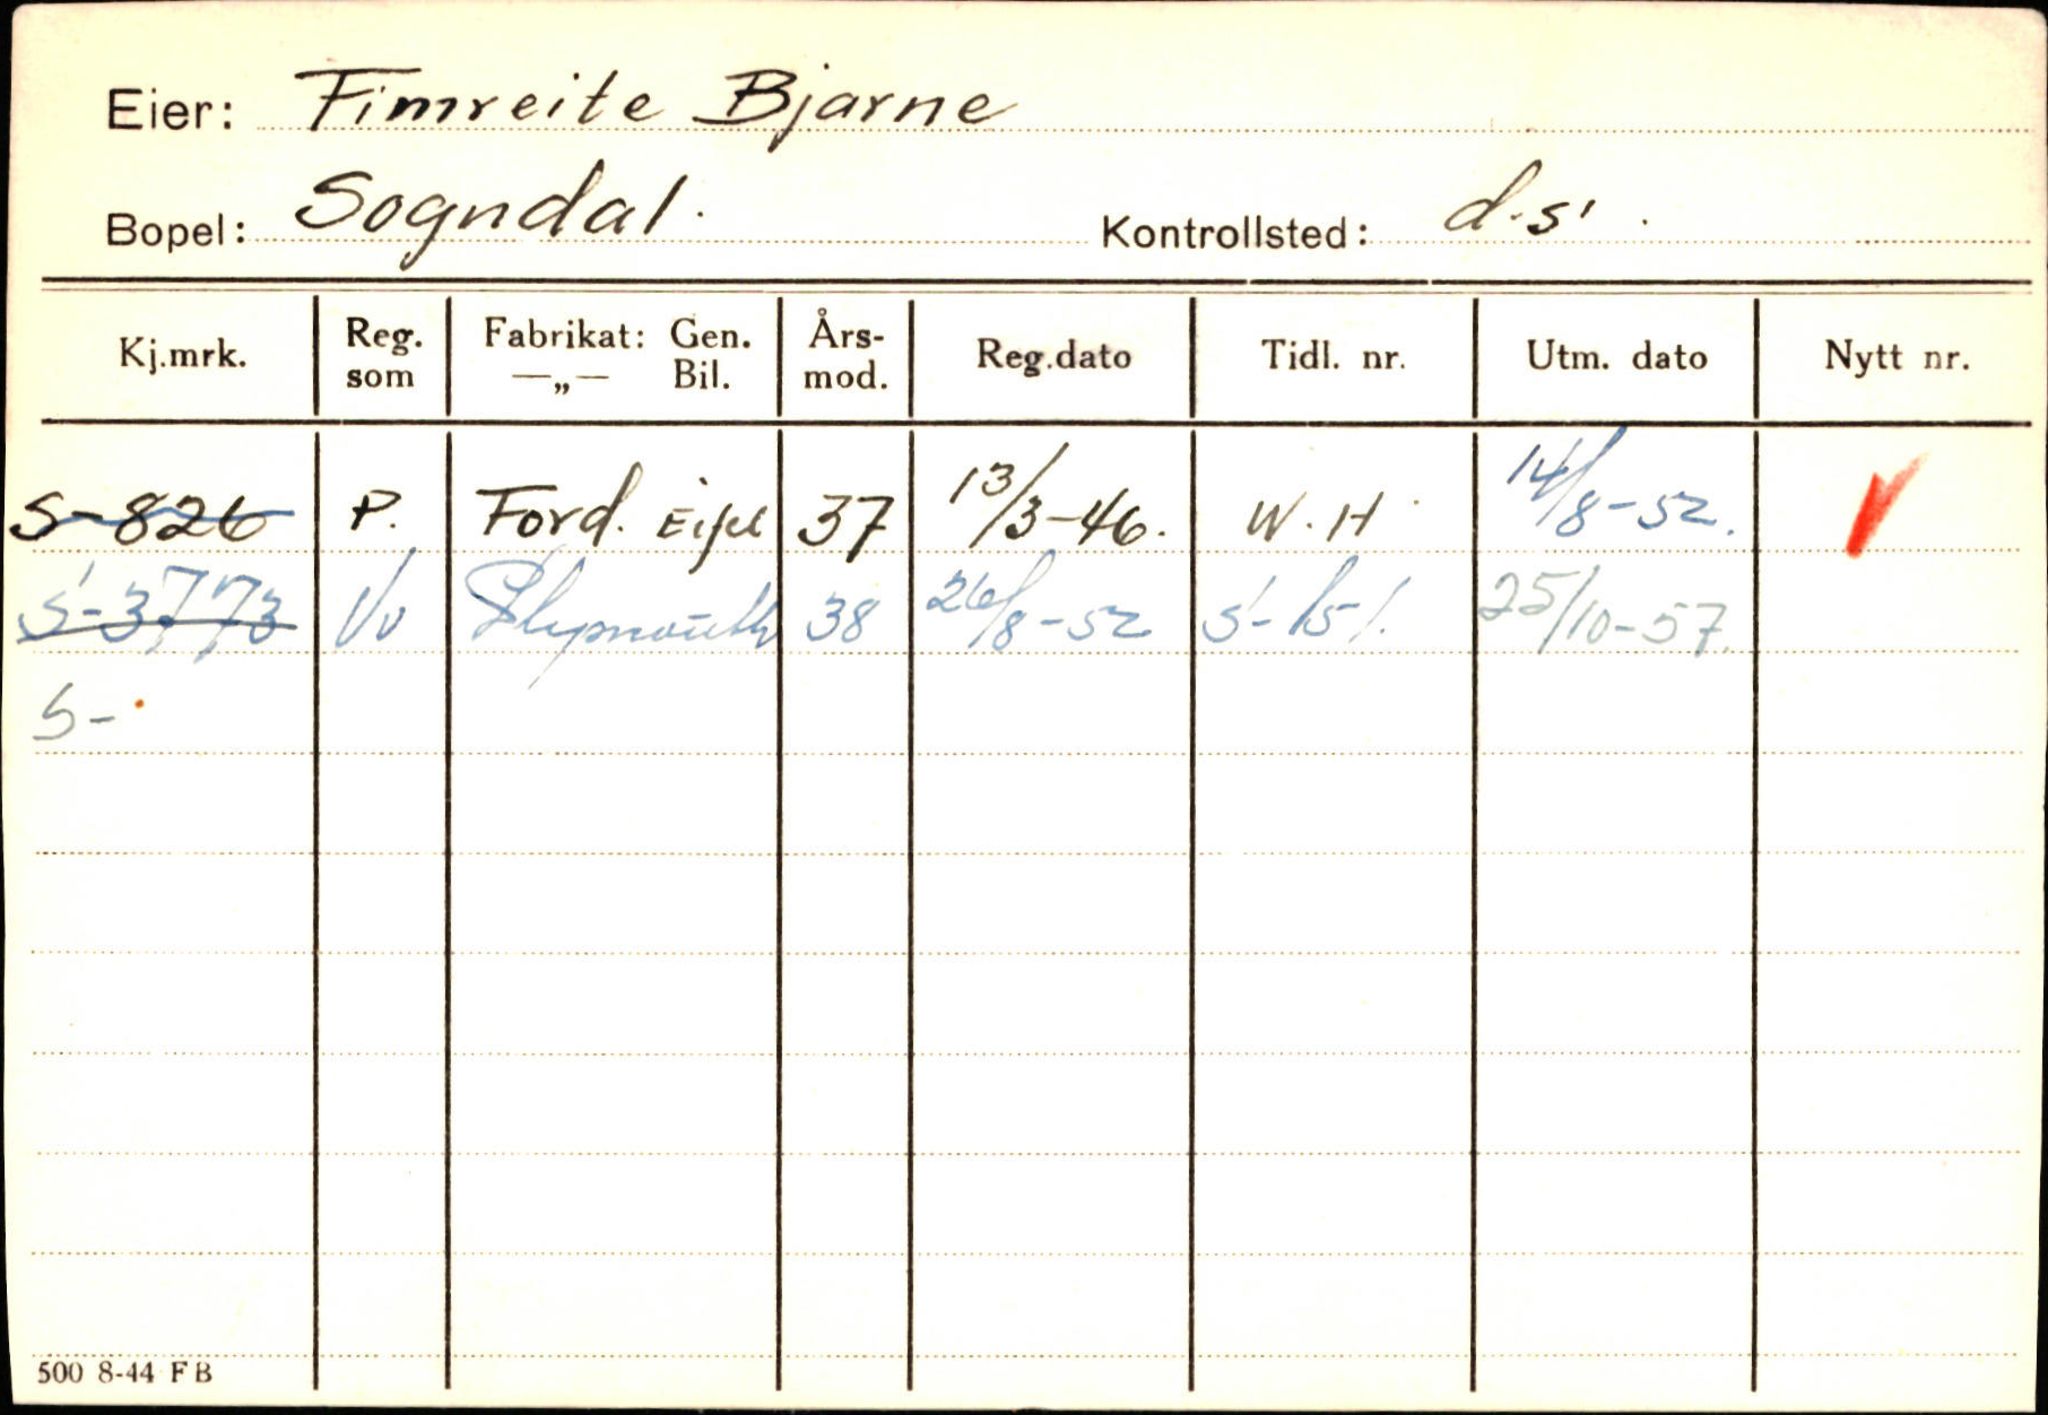 Eier: Fimreite Bjarne
Bopel: Sogndal. Kontrollsted: d.s.
Kj.mrk. Reg. som Fabrikat: Gen. —„— Bil. Års- mod. Reg.dato Tidl. nr. Utm. dato Nytt nr.
S-826 P. Ford. Eifel 37 13/3-46. W.H. 14/8-52.
S-3773 Vv Plymouth 38 26/8-52 S-151. 25/10-57.
S-
500 8-44 F B